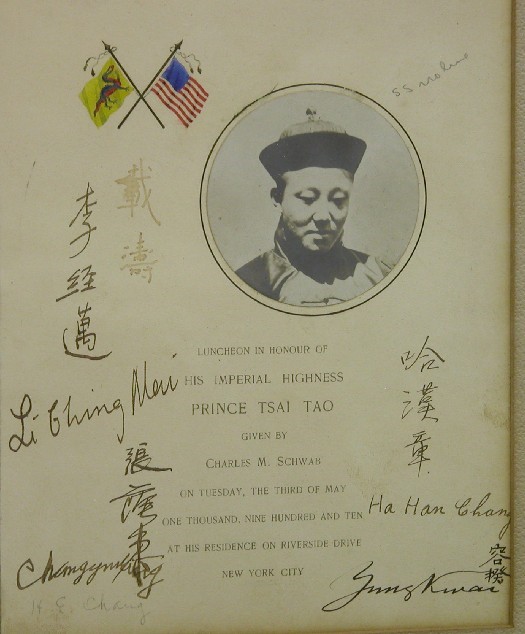 載濤
李経邁
LUNCHEON IN HONOUR OF
HIS IMPERIAL HIGHNESS
PRINCE TSAI TAO
GIVEN BY
CHARLES M. SCHWAB
ON TUESDAY, THE THIRD OF MAY
ONE THOUSAND, NINE HUNDRED AND TEN
AT HIS RESIDENCE ON RIVERSIDE DRIVE
NEW YORK CITY
Li Ching Mai
張
哈漢章
Ha Han Chang
容揆
Yung Kwai
Chang